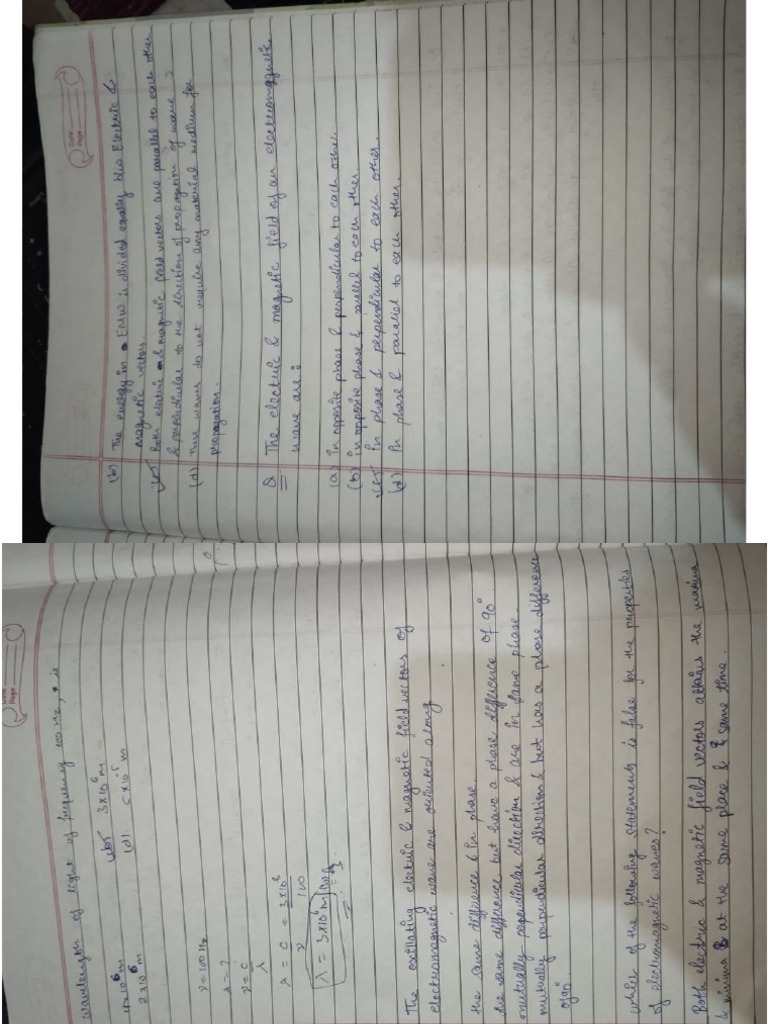 Date
Page
(b) The energy in a EMW is divided equally b/w Electric &
magnetic vectors.
(c) Both electric & magnetic field vectors are parallel to each other
& perpendicular to the direction of propagation of wave
(d) These waves do not require any material medium for
propagation.
Q The electric & magnetic field of an electromagnetic
wave are:
(a) In opposite phase & perpendicular to each other.
(b) In opposite phase & parallel to each other.
(c) In phase & perpendicular to each other.
(d) In phase & parallel to each other.
Date
Page
wavelength of light of frequency 100 Hz, is
4×10⁶m (b) 3×10⁶m
2×10⁶m (d) 5×10⁻⁵m
ν=100Hz
λ=?
ν=c/λ
λ = c/ν = 3×10⁸/100
λ = 3×10⁶m
The oscillating electric & magnetic field vectors of
electromagnetic wave are oriented along
the same difference & in phase.
the same difference but have a phase difference of 90°
mutually perpendicular direction & are in same phase.
mutually perpendicular direction & but has a phase difference
of 90.
which of the following statements is false for the properties
of electromagnetic waves?
Both electric & magnetic field vectors attains the maxima
& minima at the same place & same time.